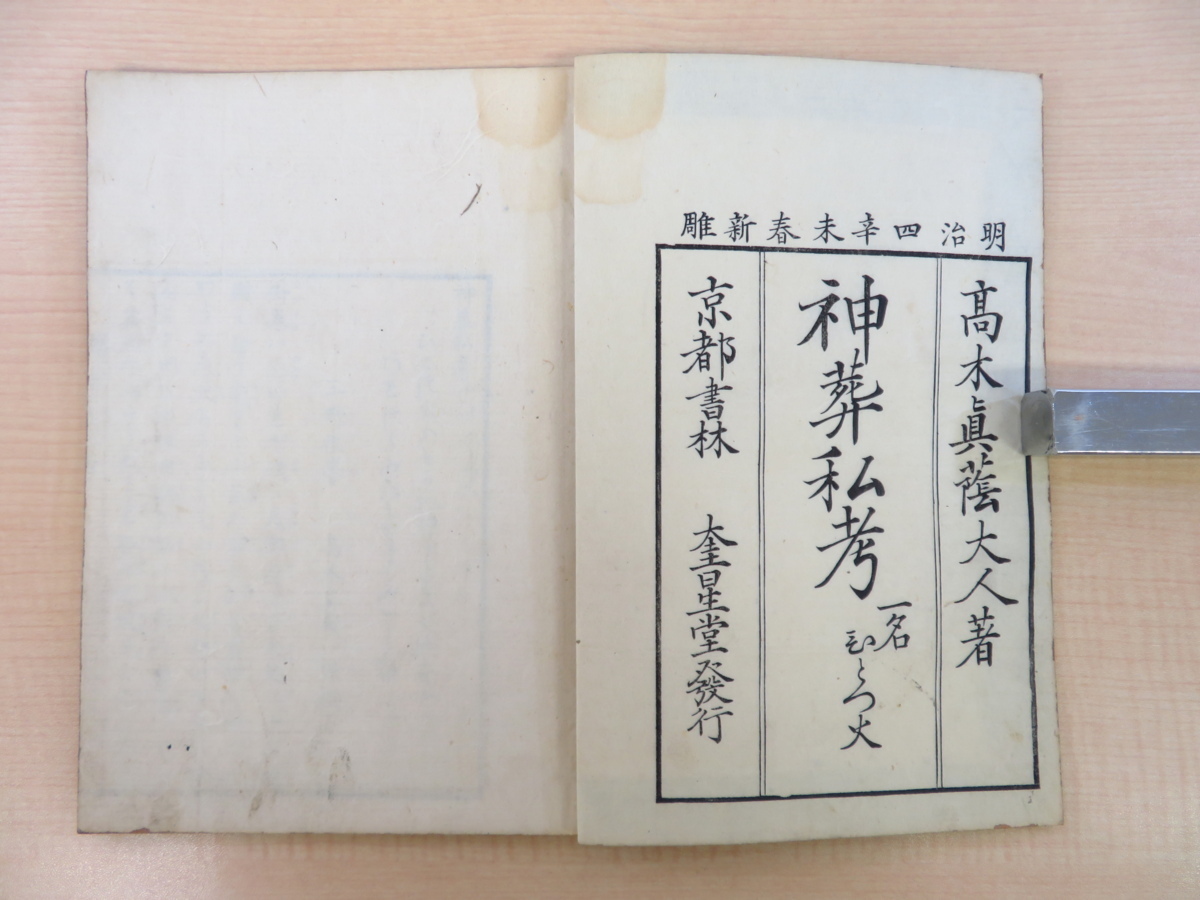 明治四辛未春新雕
髙木眞蔭大人著
神葬私考
一名
ひとつ火
京都書林 奎星堂發行